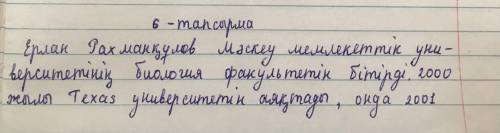 6 - тапсырма
Ерлан Рахманқұлов Мәскеу мемлекеттік уни-
верситетінің биология факультетін бітірді. 2000
жылы Texas университетін аяқтады, онда 2001